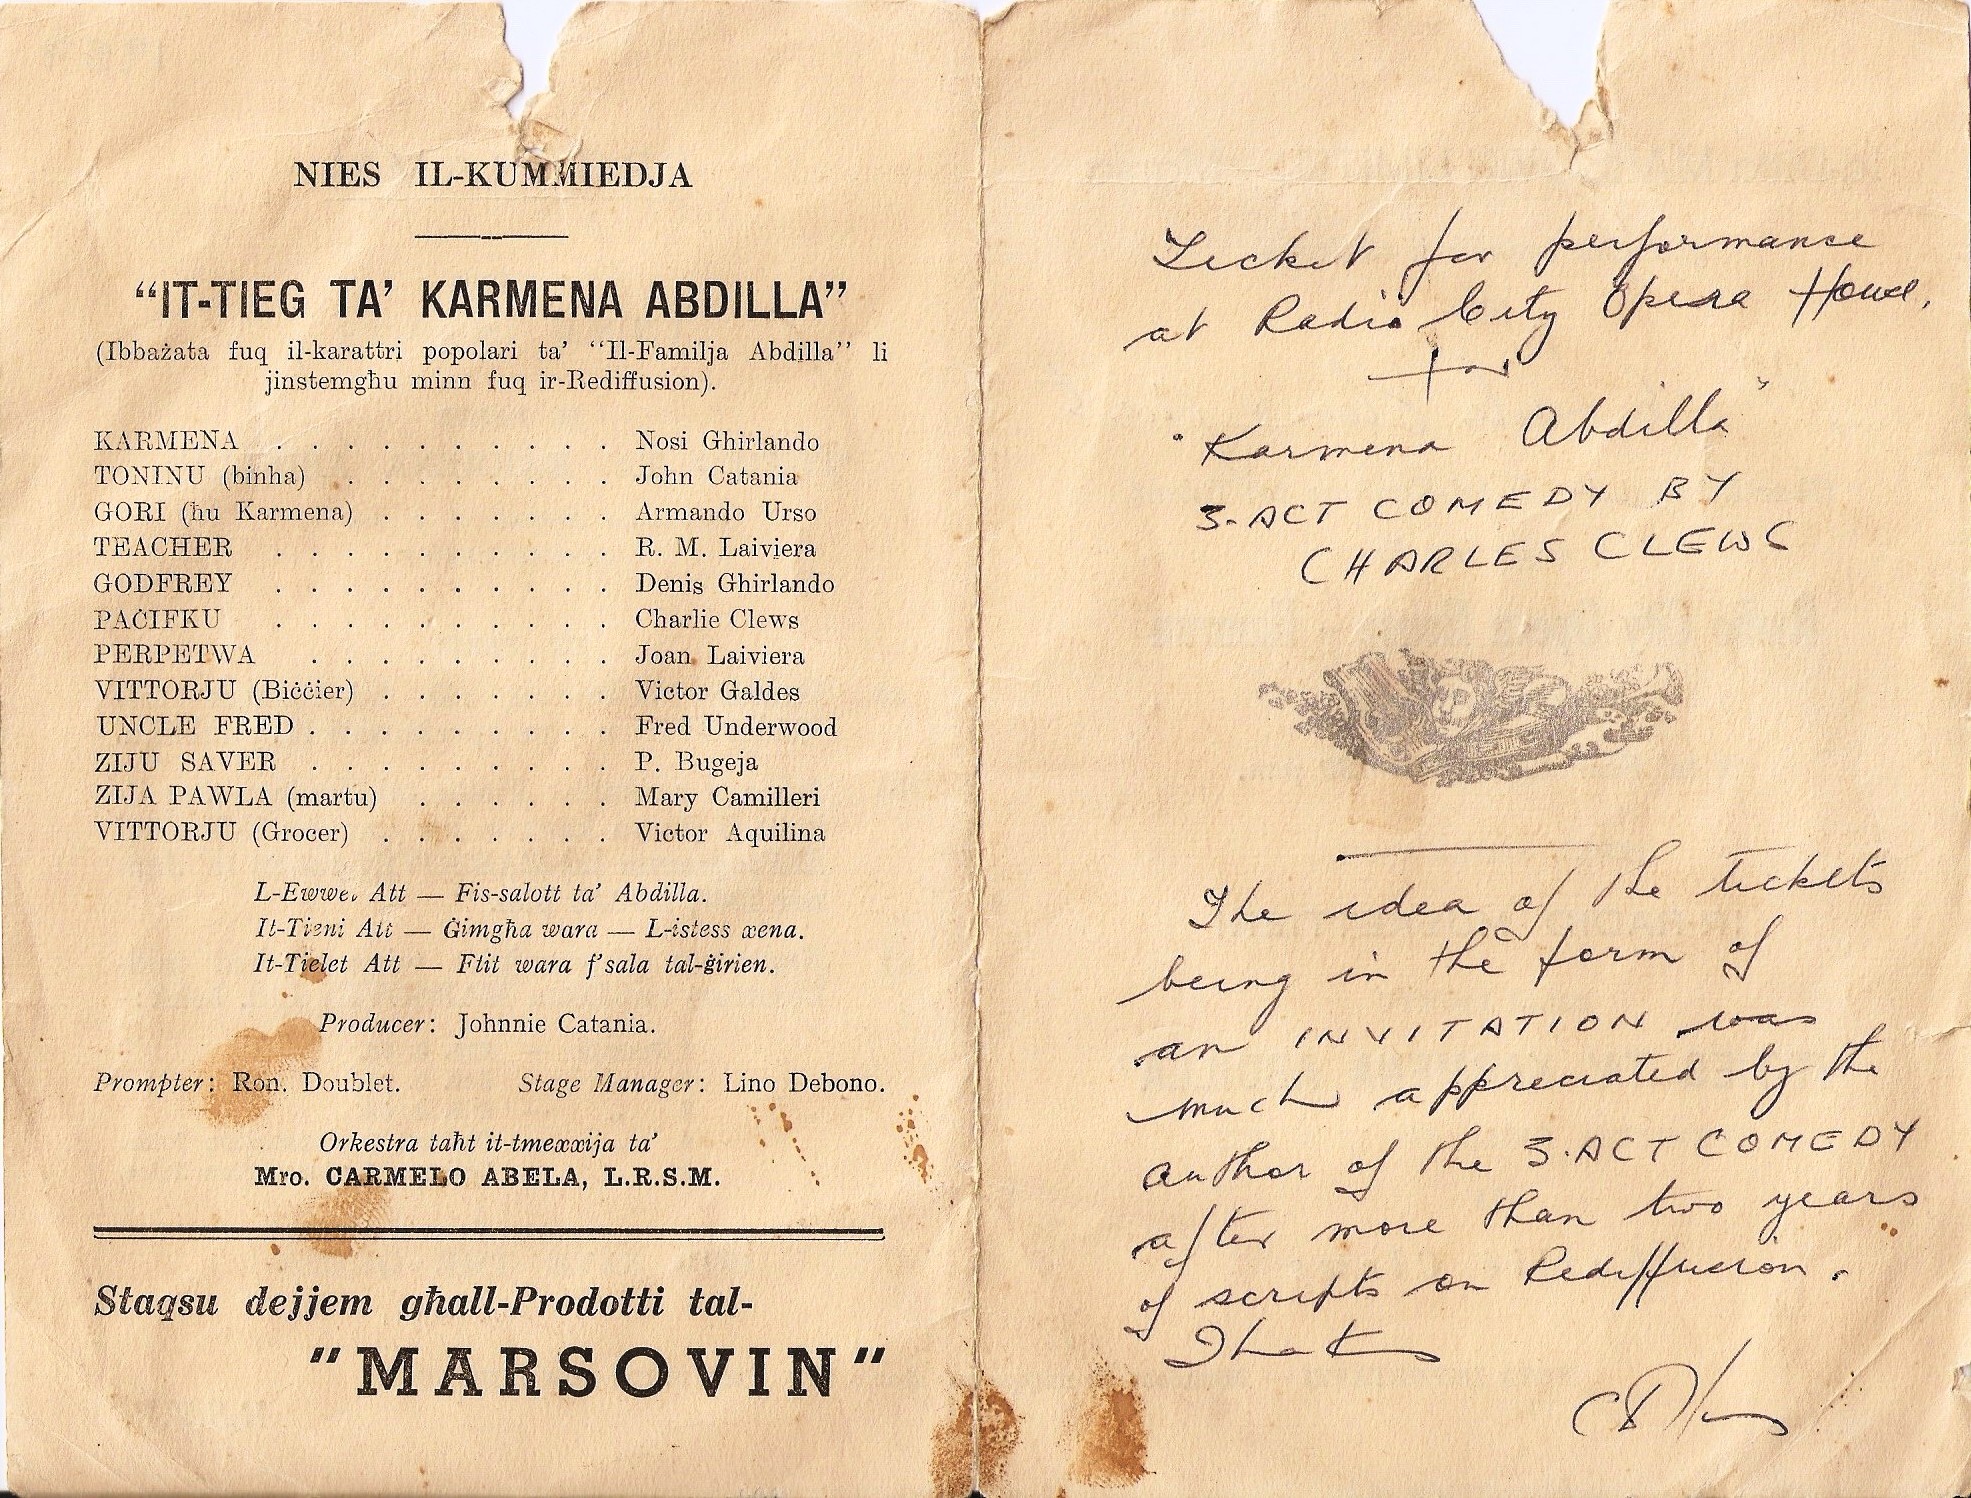 NIES IL-KUMMIEDJA
“IT-TIEG TA’ KARMENA ABDILLA”
(Ibbażata fuq il-karattri popolari ta’ “Il-Familja Abdilla” li
jinstemgħu minn fuq ir-Rediffusion).
KARMENA . . . . . . . . . . Nosi Ghirlando
TONINU (binha) . . . . . . . . John Catania
GORI (ħu Karmena) . . . . . . . Armando Urso
TEACHER . . . . . . . . . . R. M. Laiviera
GODFREY . . . . . . . . . . Denis Ghirlando
PAĊIFKU . . . . . . . . . . Charlie Clews
PERPETWA . . . . . . . . . Joan Laiviera
VITTORJU (Biċċier) . . . . . . . Victor Galdes
UNCLE FRED . . . . . . . . . Fred Underwood
ZIJU SAVER . . . . . . . . . P. Bugeja
ZIJA PAWLA (martu) . . . . . . Mary Camilleri
VITTORJU (Grocer) . . . . . . . Victor Aquilina
L-Ewwel Att — Fis-salott ta’ Abdilla.
It-Tieni Att — Ġimgħa wara — L-istess xena.
It-Tielet Att — Ftit wara f’sala tal-ġirien.
Producer: Johnnie Catania.
Prompter: Ron. Doublet. Stage Manager: Lino Debono.
Orkestra taħt it-tmexxija ta’
Mro. CARMELO ABELA, L.R.S.M.
Staqsu dejjem għall-Prodotti tal-
"MARSOVIN"
Ticket for performance
at Radio City Opera House,
for
"Karmena Abdilla"
3-ACT COMEDY BY
CHARLES CLEWS
The idea of the tickets
being in the form of
an INVITATION was
much appreciated by the
author of the 3-ACT COMEDY
after more than two years
of scripts on Rediffusion.